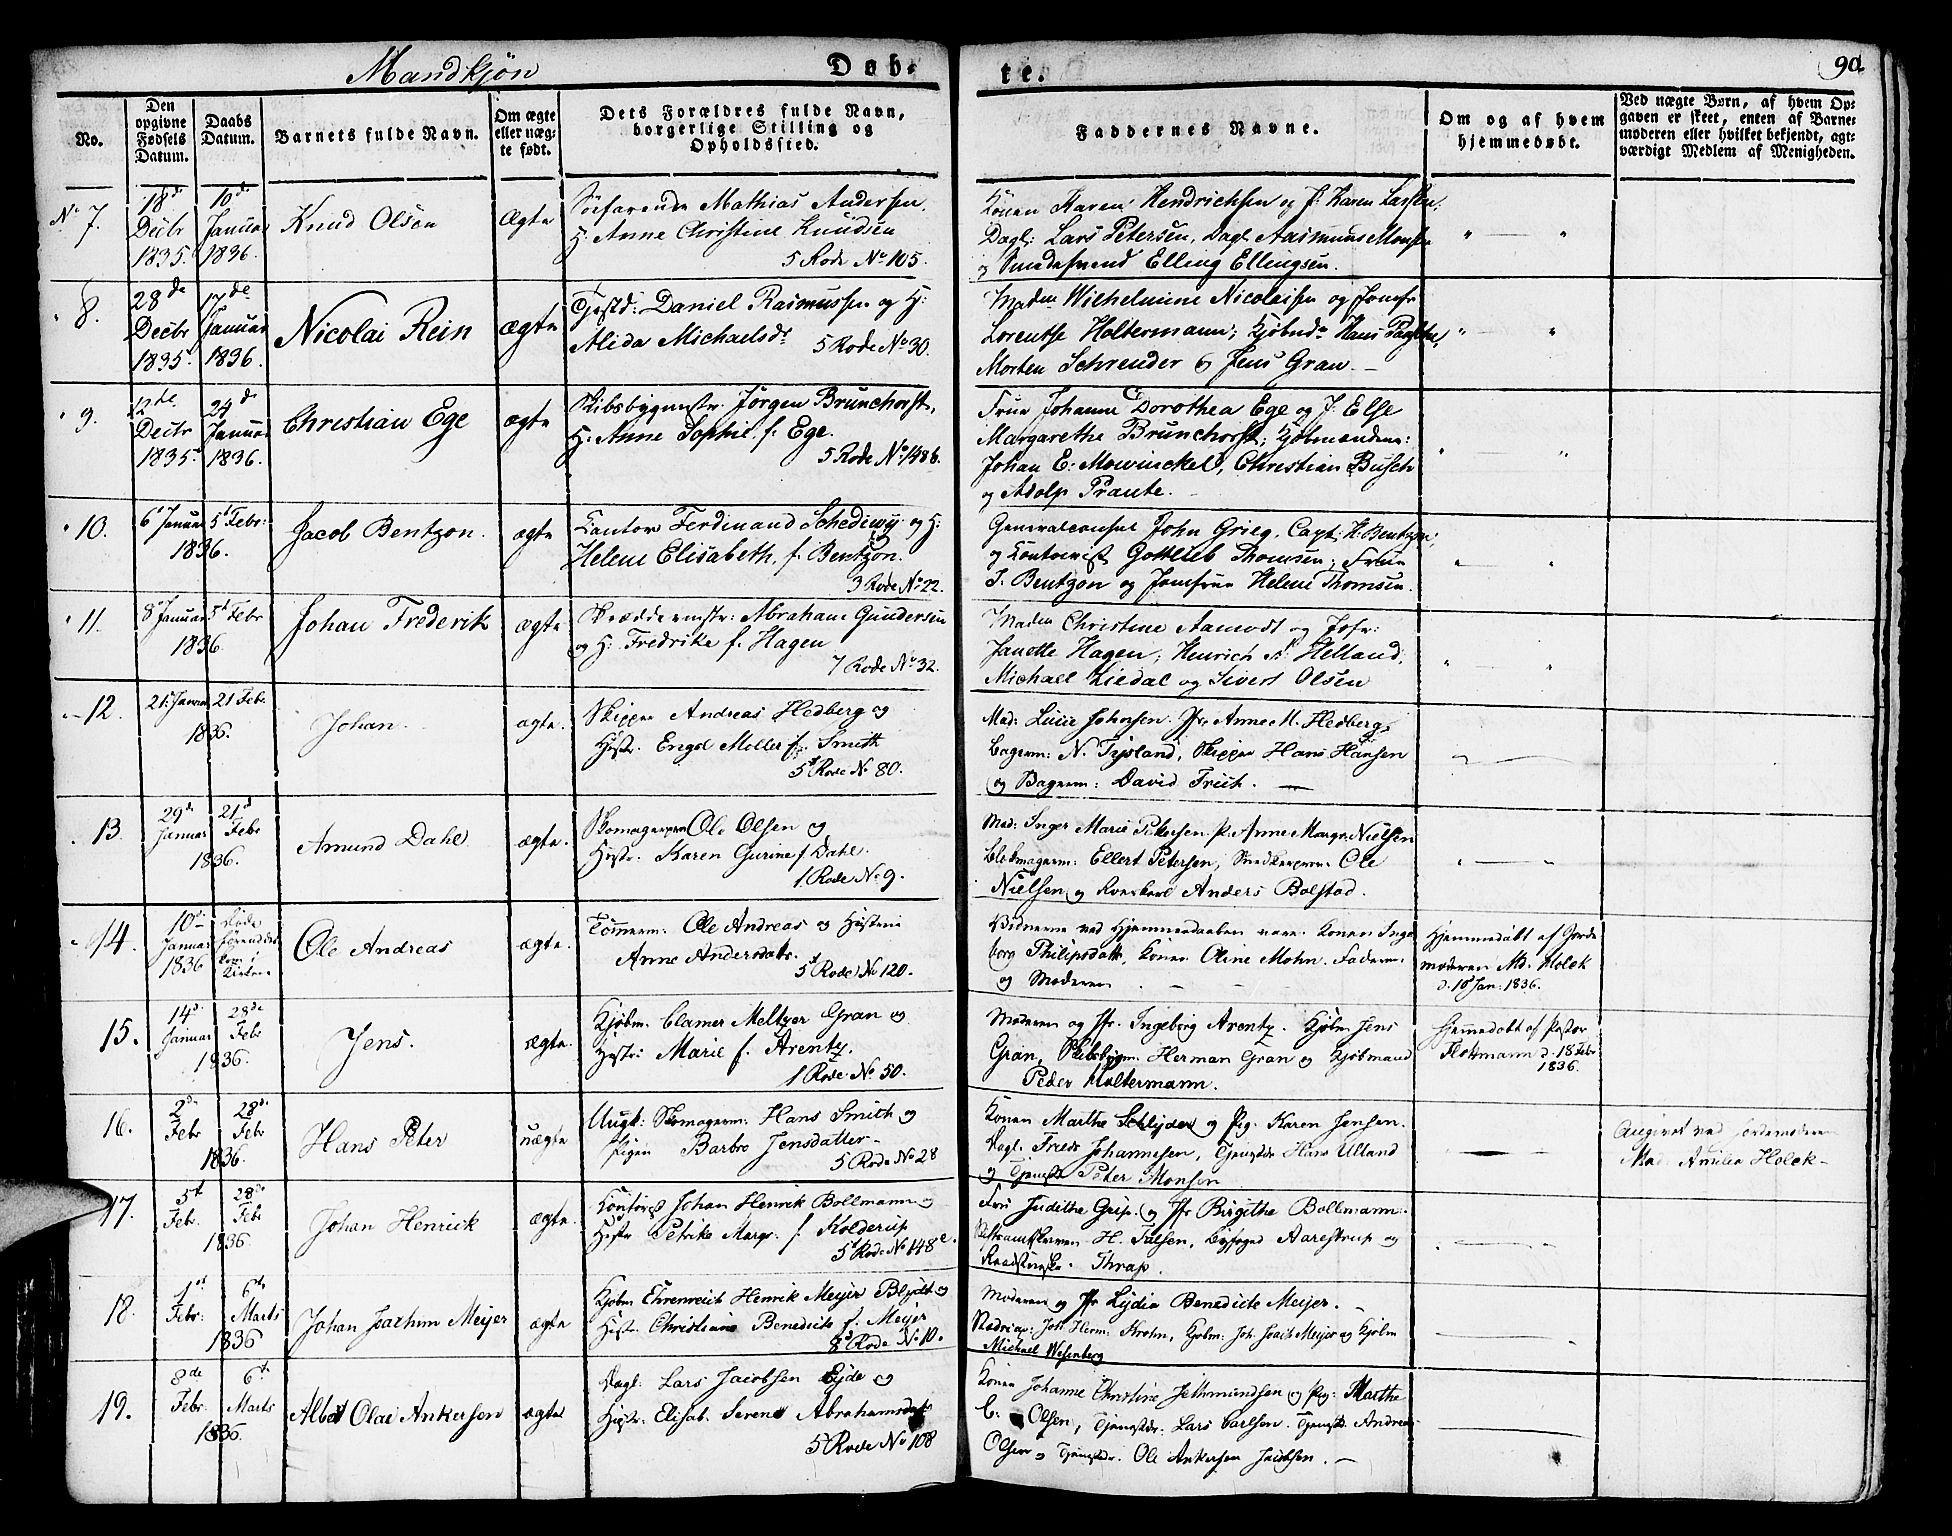 Mandkjøn
Døb-
te.
90.
No.
Den opgivne Fødsels Datum.
Daabs Datum.
Barnets fulde Navn.
Om ægte eller næg-te født.
Dets Forældres fulde Navn, borgerlige Stilling og Opholdssted.
Faddernes Navne.
Om og af hvem hjemmedøbt.
Ved nægte Børn, af hvem Op-
gaven er skeet, enten af Barne-
moderen eller hvilket bekjendt, agt-
værdigt Medlem af Menigheden.
No 7.
18de Decbr 1835.
10de Januar 1836.
Knud Olsen
Ægte
Søefarende Mathias Andersen,
H. Anne Christine Knudsen
5 Rode No 105.
Konen Karen Hendrichsen og P: Karen Larsen,
Dagl: Lars Petersen, Dagl. Aasmund Monsen
og Smedesvend Elling Ellingsen.
" 8.
28de Decbr 1835.
17de Januar 1836.
Nicolai Rein
ægte
Daniel Rasmussen og H:
Alida Michaelsdr
5 Rode No 30.
Madm Wilhelmine Nicolaisen og Jomfr
Lorentse Holtermann; Kjøbmd Hans
Morten Schreuder & Jens Gran.
" 9.
12de Decbr 1835
24de Januar 1836.
Christian Ege
ægte
Skibsbygmstr. Jørgen Brunchorst,
H. Anne Sophie f. Ege.
5 Rode No 148b.
Frue Johanne Dorothea Ege og J. Else
Margarethe Brunchorst; Kjøbmændene:
Johan E. Mowinckel, Christian Busch
og Adolp Traute.
" 10.
6t Januar 5t Febr:
1836.
Jacob Bentzon.
ægte
Cantor Ferdinand Schediwy og H:
Helene Elisabeth, f. Bentzon.
3 Rode No 22.
Generalconsul John Grieg, Capt: H. Bentzon,
og Contorist Gottlieb Thomsen; Frue
S. Bentzon og Jomfrue Helene Thomsen.
" 11.
8t Januar 5t Febr
1836.
Johan Frederik
ægte
Skræddermstr: Abraham Gundersen
og H: Fredrike f. Hagen
7 Rode No 32.
Madm Christine Aamodt og Jofr:
Janette Hagen; Henrich Helland,
Michael Ziedal og Sivert Olsen
12.
21t Januar 21 Febr.
1836.
Johan.
ægte.
Skipper Andreas Hedberg og
Hustr. Engel Møller f. Smith
5t Rode No 80.
Mad: Lucie Johnsen. Jfr. Anne M. Hedberg,
Bagerm: N. Tysland, Skipper Hans Hansen
og Bagerm: David Friis.
13.
29de Januar
21d Febr
1836.
Amund Dahl
ægte.
Skomagersvend Ole Olsen og
Hustr. Karen Gurine f. Dahl.
1 Rode No 9.
Mad: Inger Marie Petersen. P: Anne Margr. Nielsen
Blokmagerm: Ellert Petersen, Smedkersvend Ole
Nielsen og Anders Bolstad.
14.
10de Januar 1836
Døde
Ole Andreas
ægte.
Tømmerm: Ole Andreas og Hustrue
Anne Andersdatr.
5t Rode No 120.
Vidnerne ved Hjemmedaaben vare. Konen Inge
borg Philipsdatr, Konen Oline Mohn. Faderen
og Moderen
Hjemmedøbt af Jorde
moderen Md. Holck
d. 10 Jan: 1836.
15.
14d. Januar
28de Febr
1836.
Jens.
ægte.
Kjøbm. Clamer Meltzer Gran og
Hustr: Marie f. Arentz.
1 Rode No 50.
Moderen og Jfr. Ingeborg Arentz. Kjøbm Jens
Gran, Skibsbygm: Herman Gran og Kjøbmand
Peder Holtermann.
Hjemmedøbt af Pastor
Flottmann d. 18 Febr
1836.
16.
2de Febr
28de Febr
1836.
Hans Peter
uægte
Ungk: Skomagerm: Hans Smith og
Pigen Barbro Jensdatter
5 Rode No 28
Konen Marthe Schlyder og Pig. Karen Jensen.
Dagl. Fredr Johannesen, Tjenstdr. Hans Ulland
og Tjenstdr Peter Monsen
Angivet ved Jordemoderen
Mad. Amilia Holck
17.
5t Febr.
28de Febr
1836.
Johan Henrick
ægte.
Contorist Johan Henrik Bollmann og
Hustr Petrike Margr. f. Kolderup
5t Rode No 148c.
Fru Judithe Grip. og Jfr Birgithe Bollmann.
H. Falsen, Byfoged Aarestrup og
Thrap.
18.
1st Febr:
6te Marts
1836
Johan Joachim Meijer
ægte
Kjøbm Ehrenreich Henrik Meyer Blydt og
Hustr: Christiane Benedicte f. Meijer
8d Rode No 10.
Moderen og Jfr Lydia Benedicte Meijer.
Joh: Herm: Krohn, Kjøbm: Joh: Joach Meijer og Kjøbm
Michael Wesenberg
19.
8de Febr.
6te Marts
1836.
Albert Olai Ankersen
ægte
Dagl: Lars Jacobsen Eyde og
Hustr: Elisab. Serene Abrahamsdatr
5 Rode No 108
Konen Johanne Christine Jethmundsen og Pig: Marthe
C. Olsen, Tjenstdr. Lars Carlsen. Tjenstdr. Andreas
Olsen og Tjenstdr. Ole Ankersen Jacobsen.